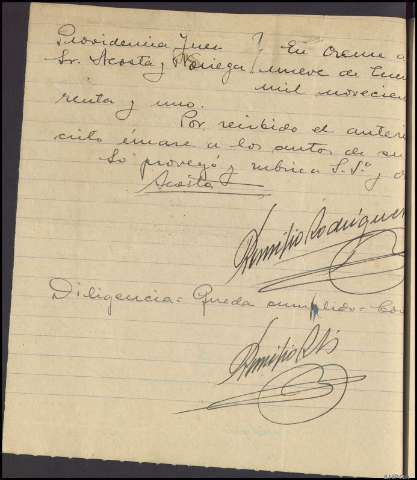 Providencia Juez } En Orense a
Sr. Acosta y Noriega } nueve de Ene
mil novecien
renta y uno.
Por recibido el anter
crito únase a los autos de su
Lo proveyó y rubrica S.Sª y d
Acosta
Remilio Rodríguez
Diligencia = Queda cumplido =